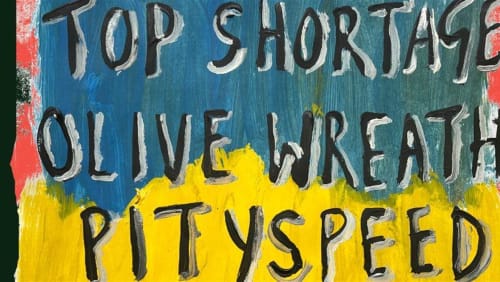 TOP SHORTAGE
OLIVE WREATH
PITYSPEED